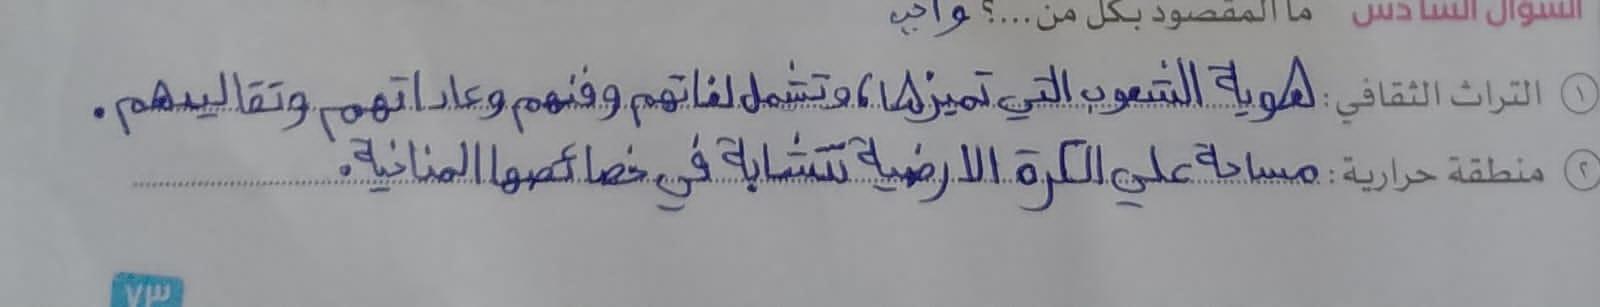 السؤال السادس ما المقصود بكل من...؟ واجب
١ التراث الثقافي: هوية الشعوب التي تميزها، وتشمل لغاتهم وفنهم وعاداتهم وتقاليدهم.
٢ منطقة حرارية: مساحة علي الكرة الارضية تتشابة في خصائصها المناخية.
٧٣